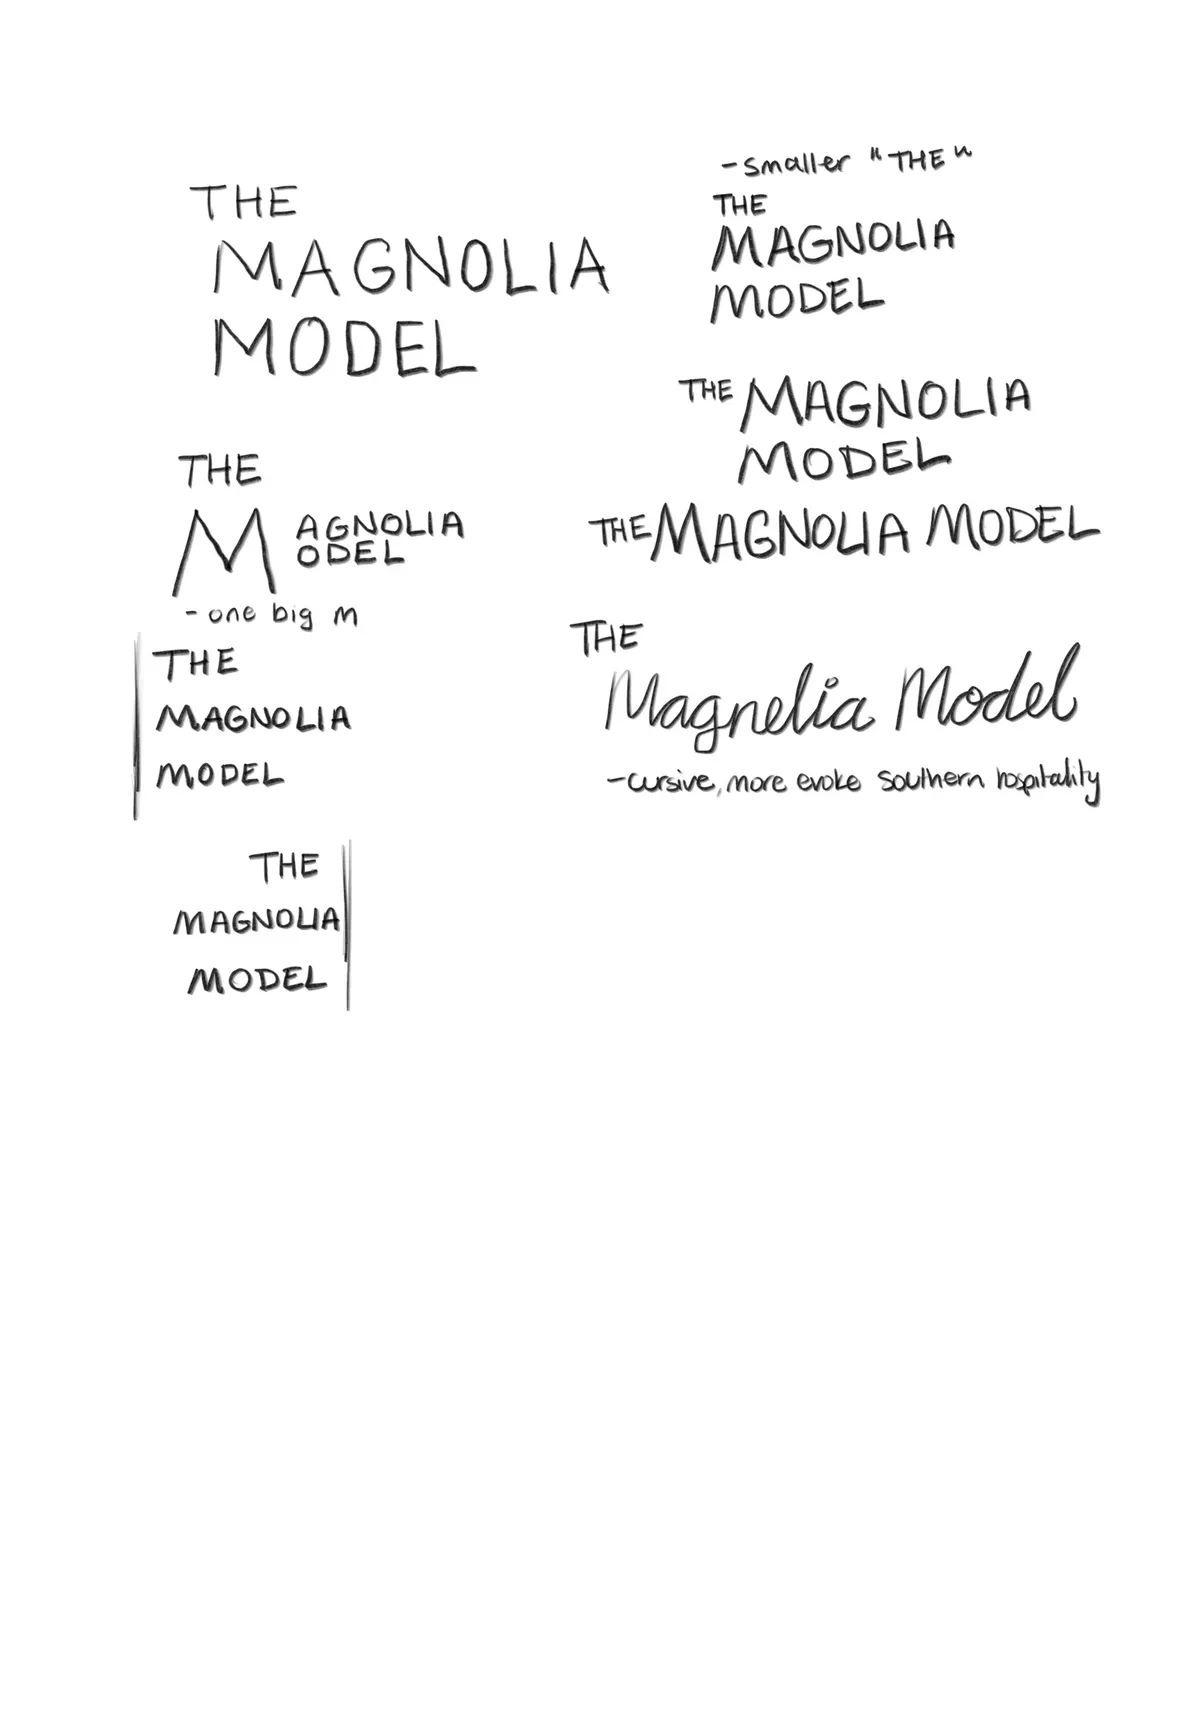 THE
MAGNOLIA
MODEL
THE
M AGNOLIA
ODEL
- one big m
THE
MAGNOLIA
MODEL
THE
MAGNOLIA
MODEL
- smaller "THE"
THE
MAGNOLIA
MODEL
THE MAGNOLIA
MODEL
THE MAGNOLIA MODEL
THE
Magnelia Model
- cursive, more evoke southern hospitality